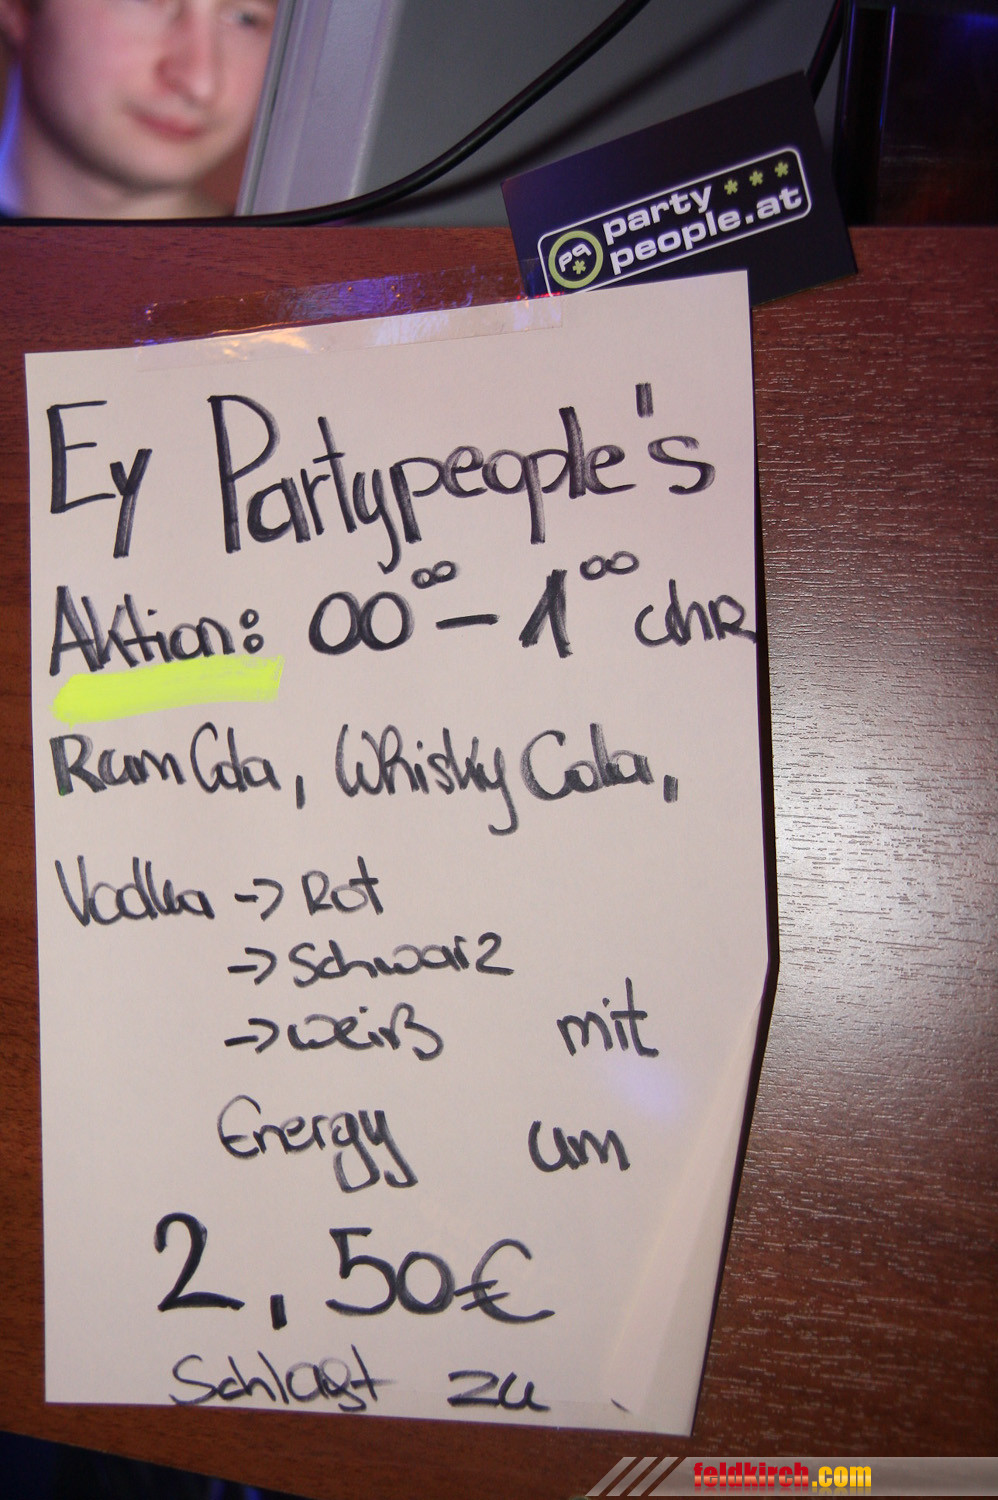 party ***
people.at
pq*
Ey Partypeople's
Aktion: 00⁰⁰ - 1⁰⁰ Uhr
Rum Cola, Whisky Cola,
Vodka -> Rot
-> Schwarz
-> weiß mit
Energy um
2,50€
Schlagt zu.
feldkirch.com